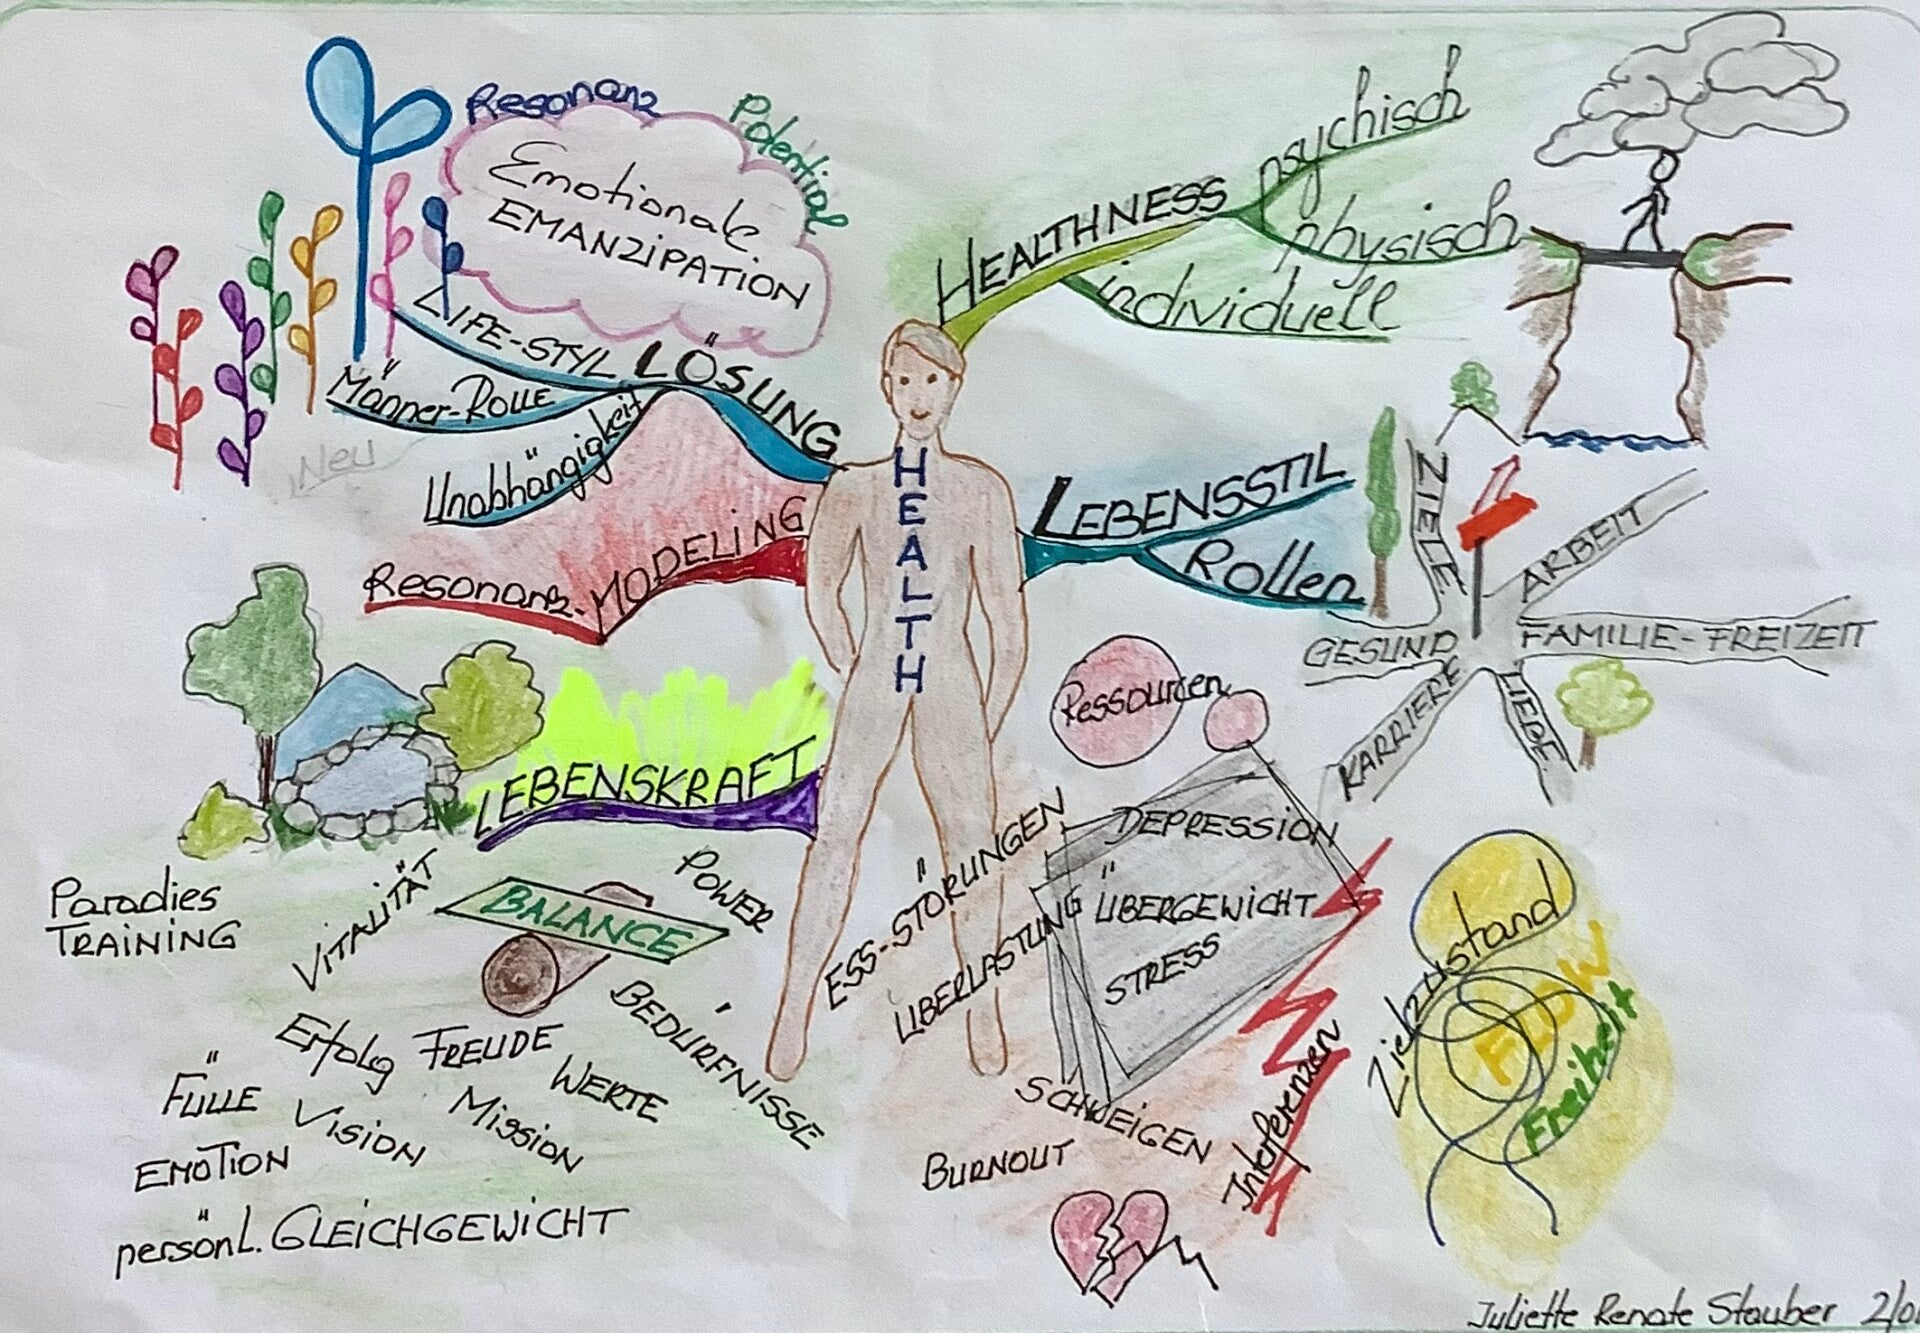 Resonanz
Potential
Emotionale
EMANZIPATION
LIFE-STYL
LÖSUNG
Männer-ROLLE
Neu
Unabhängigkeit
Resonanz-MODELING
LEBENSKRAFT
Paradies
TRAINING
VITALITÄT
BALANCE
POWER
BEDÜRFNISSE
Erfolg
FREUDE
WERTE
FÜLLE
VISION
MISSION
EMOTION
persönl. GLEICHGEWICHT
HEALTH
HEALTHNESS
psychisch
physisch
individuell
LEBENSSTIL
Rollen
ZIELE
ARBEIT
GESUND
FAMILIE-FREIZEIT
KARRIERE
LIEBE
Ressourcen
ESS-STÖRUNGEN
ÜBERLASTUNG
DEPRESSION
ÜBERGEWICHT
STRESS
SCHWEIGEN
BURNOUT
Interferenzen
Zielzustand
FLOW
Freiheit
Juliette Renate Stauber